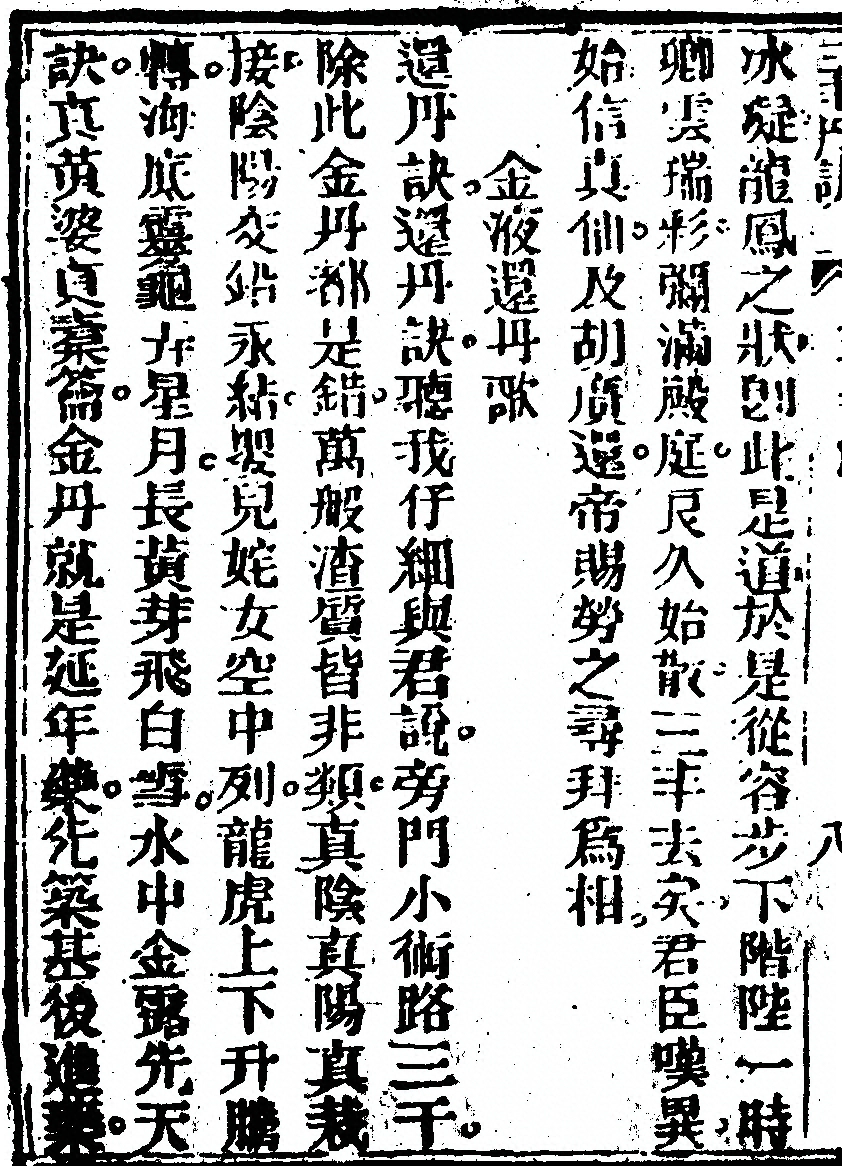 冰凝龍鳳之狀則此是道於是從容步下階陛一時
卿雲瑞彩彌滿殿庭良久始散三丰去矣君臣嘆異
始信真仙及胡廣還帝賜勞之尋拜爲相
金液還丹歌
還丹訣還丹訣聽我仔細與君說旁門小術路三千
除此金丹都是錯萬般渣質皆非類真陰真陽真栽
接陰陽交鉛汞結嬰兒姹女空中列龍虎上下升騰
轉海底靈龜弄星月長黃芽飛白雪水中金露先天
訣真黄婆真橐籥金丹就是延年藥先築基後進藥